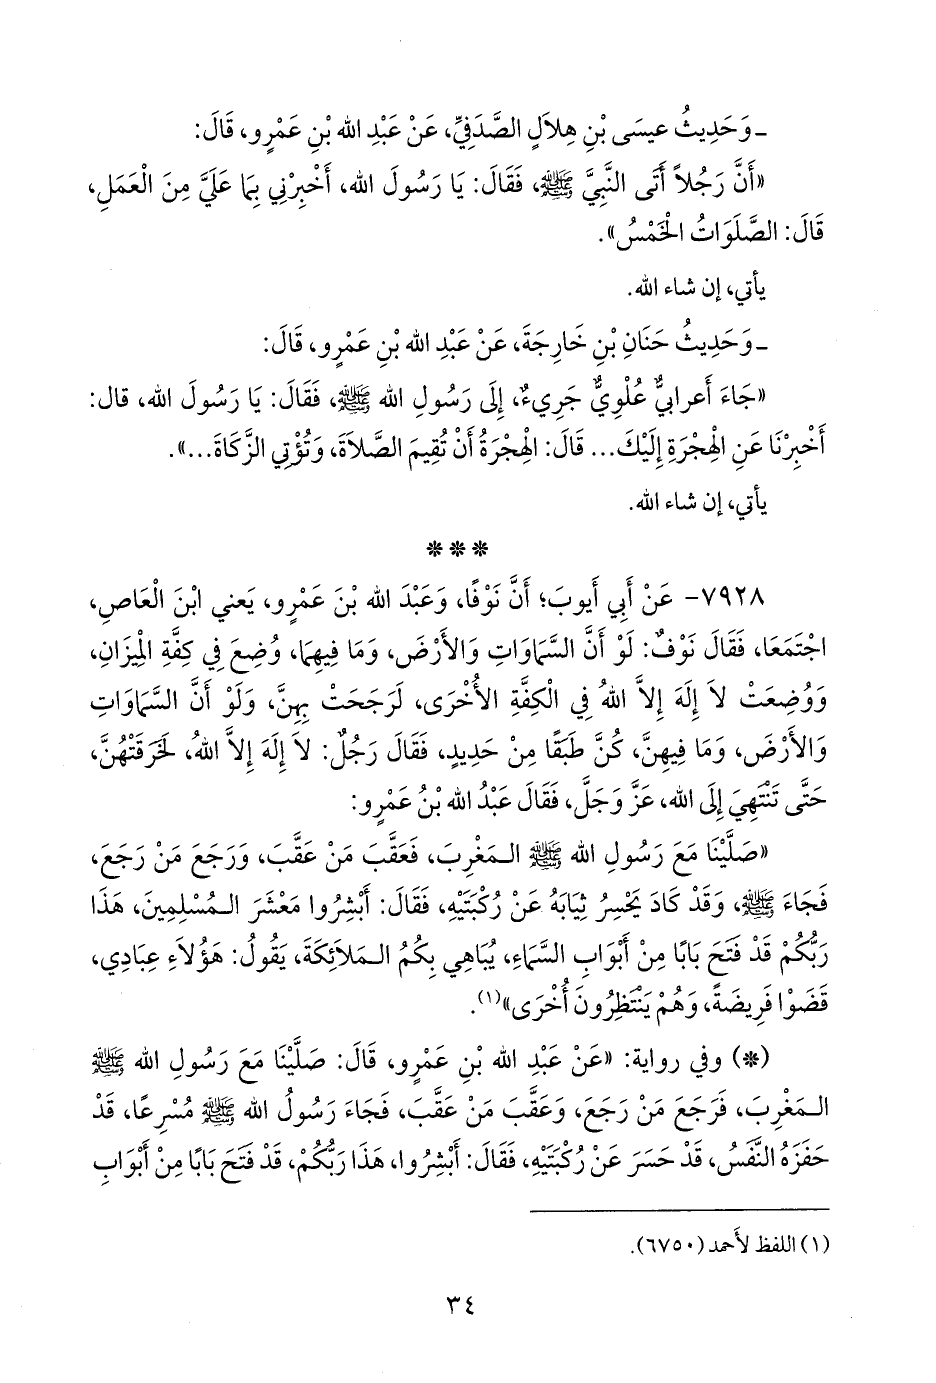 ـ وَحَدِيثُ عيسَى بْنِ هِلاَلٍ الصَّدَفِيِّ، عَنْ عَبْدِ الله بْنِ عَمْرٍو، قَالَ:
«أَنَّ رَجُلاً أَتَى النَّبِيَّ ﷺ، فَقَالَ: يَا رَسُولَ الله، أَخْبِرْنِي بِمَا عَلَيَّ مِنَ الْعَمَلِ،
قَالَ: الصَّلَوَاتُ الْخَمْسُ».
يأتي، إن شاء الله.
ـ وَحَدِيثُ حَنَانِ بْنِ خَارِجَةَ، عَنْ عَبْدِ الله بْنِ عَمْرٍو، قَالَ:
«جَاءَ أَعرابيٌّ عُلْوِيٌّ جَرِيءٌ، إِلَى رَسُولِ الله ﷺ، فَقَالَ: يَا رَسُولَ الله، قال:
أَخْبِرْنَا عَنِ الْهِجْرَةِ إِلَيْكَ... قَالَ: الْهِجْرَةُ أَنْ تُقِيمَ الصَّلاَةَ، وَتُؤْتِي الزَّكَاةَ...».
يأتي، إن شاء الله.
***
٧٩٢٨- عَنْ أَبِي أَيوبَ؛ أَنَّ نَوْفًا، وَعَبْدَ الله بْنَ عَمْرٍو، يَعني ابْنَ الْعَاصِ،
اجْتَمَعَا، فَقَالَ نَوْفٌ: لَوْ أَنَّ السَّمَاوَاتِ وَالأَرْضَ، وَمَا فِيهِمَا، وُضِعَ فِي كِفَّةِ الْمِيزَانِ،
وَوُضِعَتْ لاَ إِلَهَ إِلاَّ اللهُ فِي الْكِفَّةِ الأُخْرَى، لَرَجَحَتْ بِهِنَّ، وَلَوْ أَنَّ السَّمَاوَاتِ
وَالأَرْضَ، وَمَا فِيهِنَّ، كُنَّ طَبَقًا مِنْ حَدِيدٍ، فَقَالَ رَجُلٌ: لاَ إِلَهَ إِلاَّ اللهُ، لَخَرَقَتْهُنَّ،
حَتَّى تَنْتَهِيَ إِلَى الله، عَزَّ وَجَلَّ، فَقَالَ عَبْدُ الله بْنُ عَمْرٍو:
«صَلَّيْنَا مَعَ رَسُولِ الله ﷺ الـمَغْرِبَ، فَعَقَّبَ مَنْ عَقَّبَ، وَرَجَعَ مَنْ رَجَعَ،
فَجَاءَ ﷺ، وَقَدْ كَادَ يَحْسِرُ ثِيَابَهُ عَنْ رُكْبَتَيْهِ، فَقَالَ: أَبْشِرُوا مَعْشَرَ الـمُسْلِمِينَ، هَذَا
رَبُّكُمْ قَدْ فَتَحَ بَابًا مِنْ أَبْوَابِ السَّمَاءِ، يُبَاهِي بِكُمُ الـمَلاَئِكَةَ، يَقُولُ: هَؤُلاَءِ عِبَادِي،
قَضَوْا فَرِيضَةً، وَهُمْ يَنْتَظِرُونَ أُخْرَى»(١).
(*) وفي رواية: «عَنْ عَبْدِ الله بْنِ عَمْرٍو، قَالَ: صَلَّيْنَا مَعَ رَسُولِ الله ﷺ
الـمَغْرِبَ، فَرَجَعَ مَنْ رَجَعَ، وَعَقَّبَ مَنْ عَقَّبَ، فَجَاءَ رَسُولُ الله ﷺ مُسْرِعًا، قَدْ
حَفَزَهُ النَّفَسُ، قَدْ حَسَرَ عَنْ رُكْبَتَيْهِ، فَقَالَ: أَبْشِرُوا، هَذَا رَبُّكُمْ، قَدْ فَتَحَ بَابًا مِنْ أَبْوَابِ
(١) اللفظ لأَحمد (٦٧٥٠).
٣٤